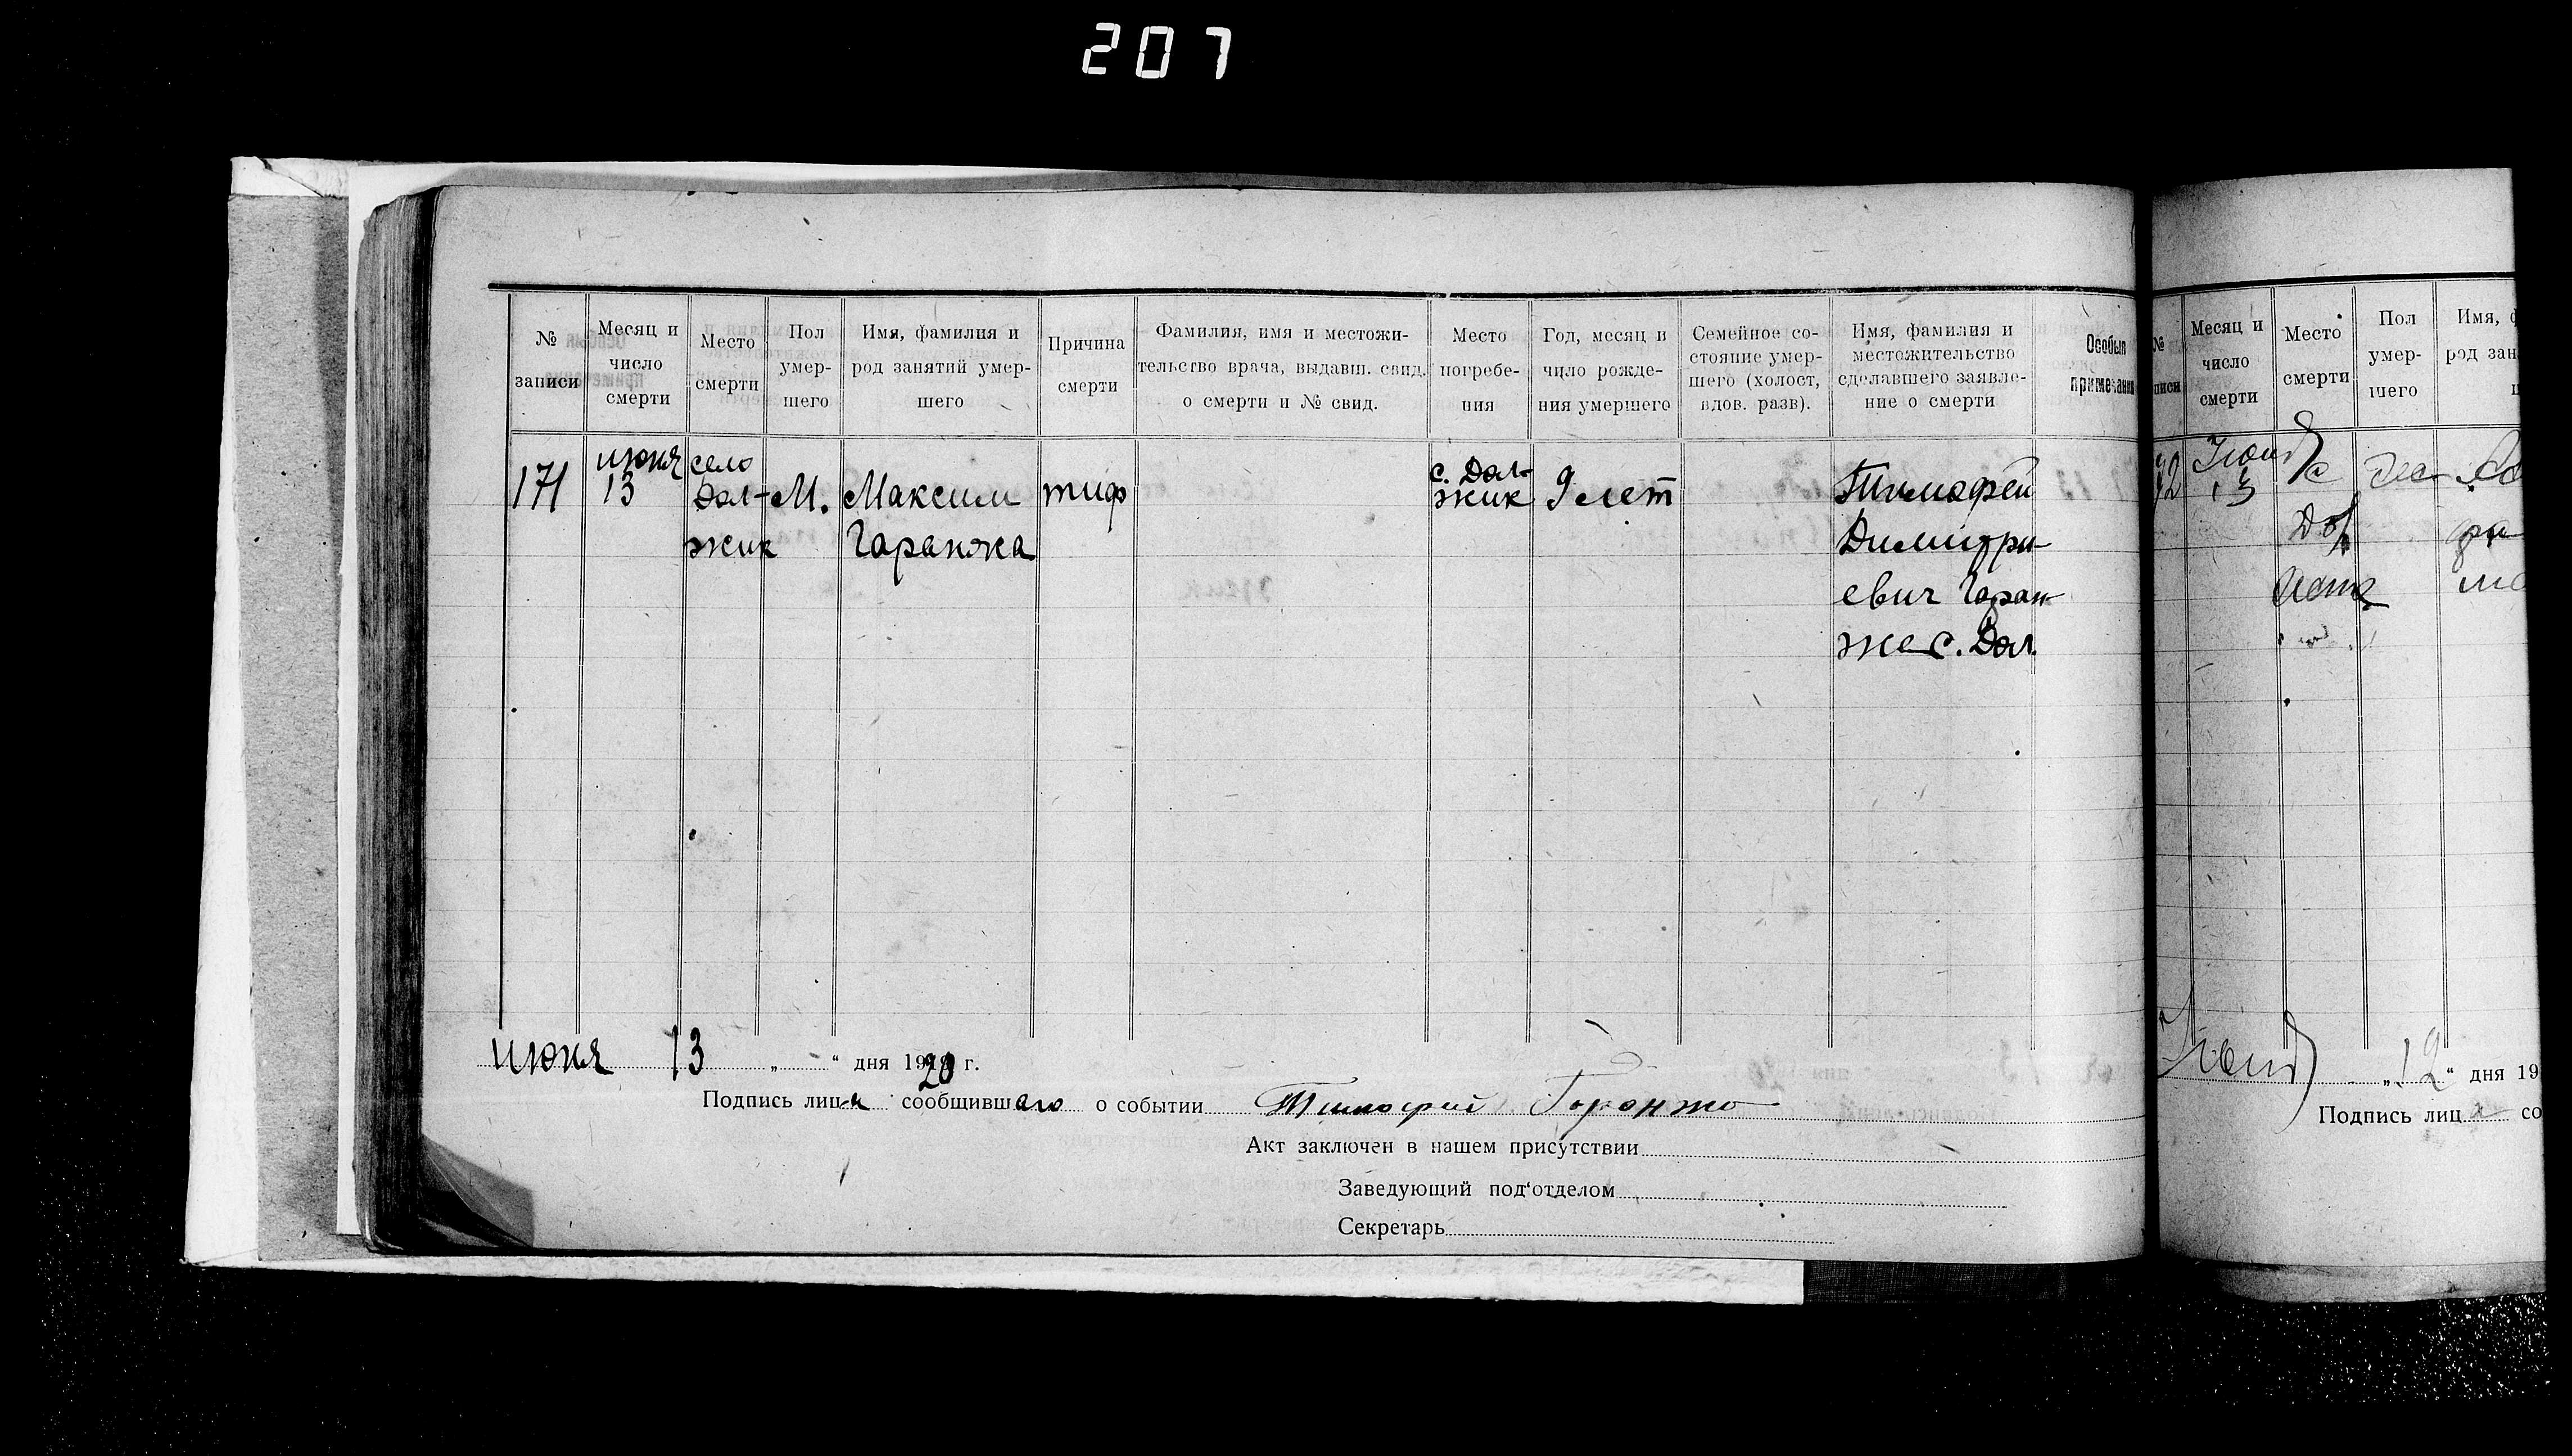 207
№ записи
Месяц и число смерти
Место смерти
Пол умер-шего
Имя, фамилия и род занятий умер-шего
Причина смерти
Фамилия, имя и местожи-тельство врача, выдавш. свид. о смерти и № свид.
Место погребе-ния
Год, месяц и число рожде-ния умершего
Семейное со-стояние умер-шего (холост, вдов. разв).
Имя, фамилия и местожительство сделавшего заявле-ние о смерти
Особыя примечания
171
июня
13
село
Дал-
жик
М.
Максим
Гаранжа
тиф
с. Дал-
жик
9 лет
Тимофей
Димитри-
евич Гаран-
же с. Дал.
июня 13 „ “ дня 1920 г.
Подпись лица сообщившаго о событии Тимофей Горонжо
Акт заключен в нашем присутствии
Заведующий под‘отделом
Секретарь
№
писи
Месяц и
число
смерти
Место
смерти
Пол
умер-
шего
Имя,
род зан
13
„12“ дня 19
Подпись лица со